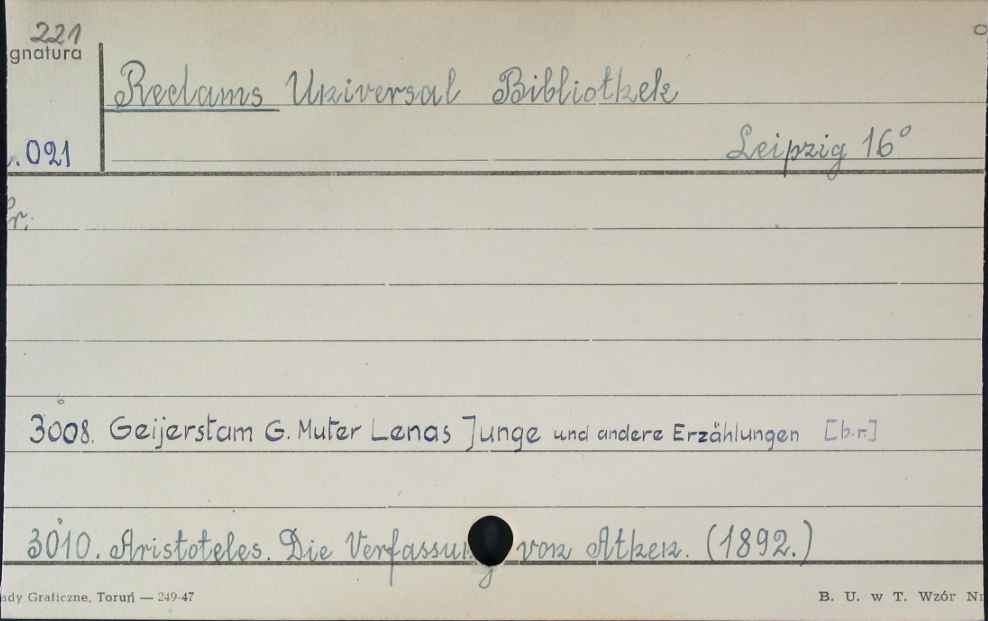 221
gnatura
Reclams Universal Bibliothek
021
Leipzig 16°
3008. Geijerstam G. Muter Lenas Junge und andere Erzählungen [b.r.]
3010. Aristoteles. Die Verfassung von Athen. (1892.)
ady Graficzne, Toruń — 249-47
B. U. w T. Wzór Nr